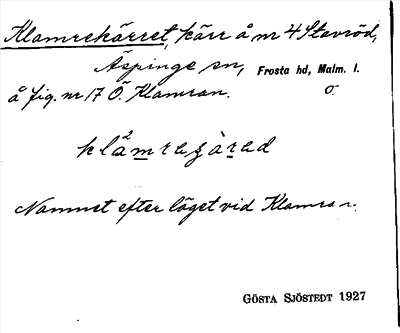 Klamrekärret, kärr å nr 4 Stavröd,
Äspinge sn, Frosta hd, Malm. l.
å fig. nr 17 Ö. Klamran. o.
Namnet efter läget vid Klamran.
GÖSTA SJÖSTEDT 1927